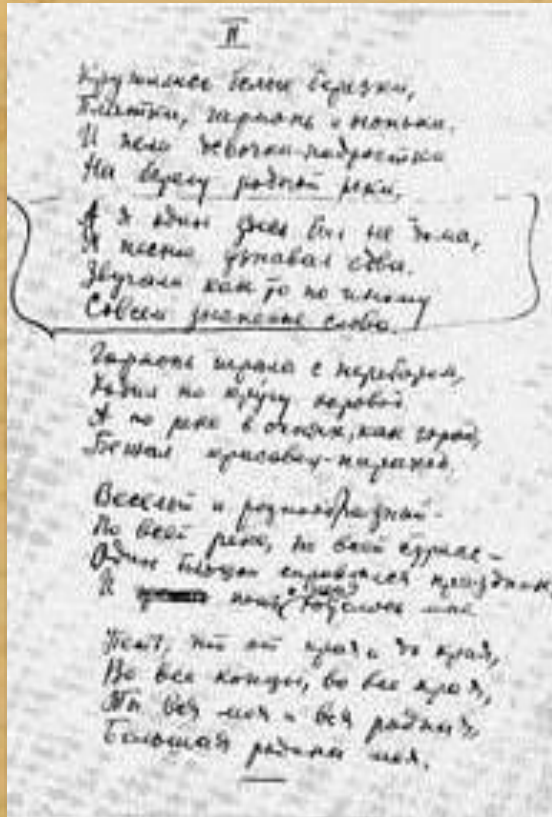 II
Кружились белые березки,
Платки, гармонь и огоньки.
И пели девочки-подростки
На берегу родной реки,
А я один здесь был не дома,
Я песни узнавал едва.
Звучали как то по иному
Совсем знакомые слова.
Гармонь играла с перебором,
Ходил по кругу хоровод
А по реке в огнях, как город,
Бежал красавец-пароход.
Веселый и разнообразный –
По всей реке, по всей стране –
Один большой справлялся праздник,
И петь хотелось мне
Петь, что от края и до края,
Во все концы, во все края,
Ты вся моя и вся родная,
Большая родина моя.